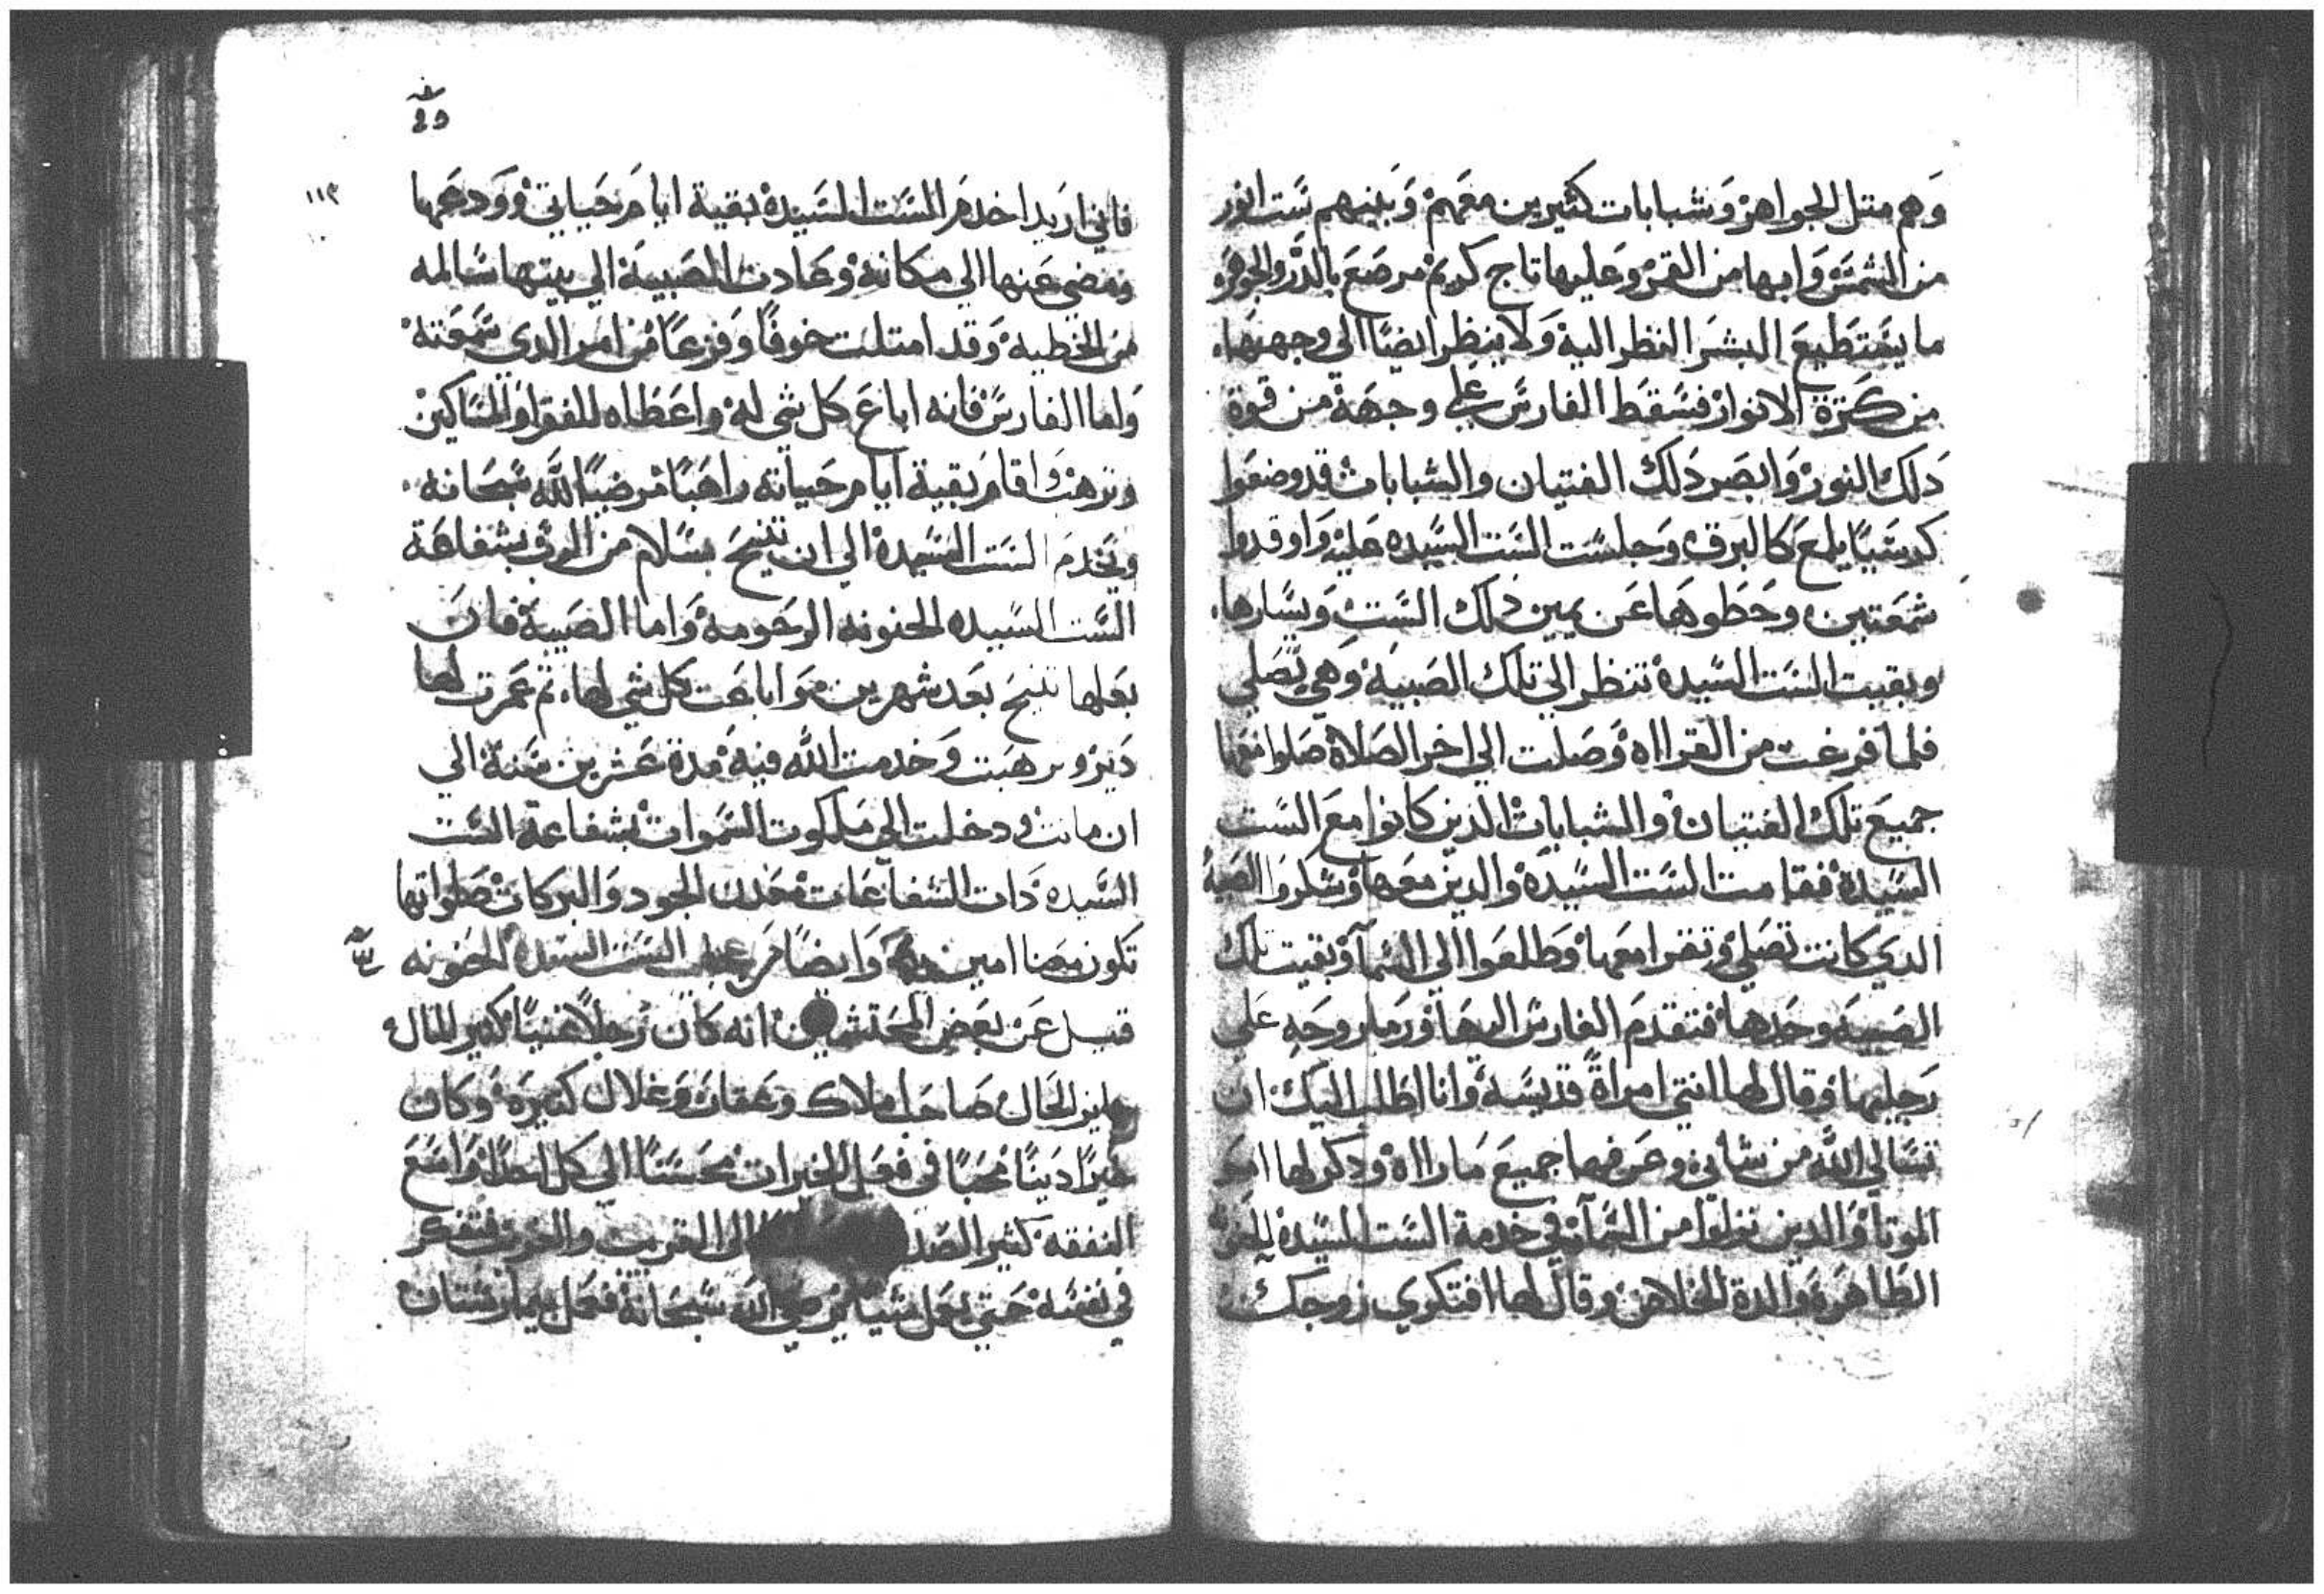 وهم متل الجواهر وشبابات كتيرين معهم وبينهم ست انور
من الشمس وابها من القمر وعليها تاج كريم مرصع بالدر والجوهر
ما يستطيع البشر النظر اليه ولا ينظر ايضا الي وجهها
من كترة الانوار فسقط الفارس علي وجهه من قوة
دلك النور وابصر دلك الفتيان والشبابات قد وضعوا
كرسيا يلمع كالبرق وجلست الست السيده عليه واوقدوا
شمعتين وحطوها عن يمين دلك الست ويسارها
وبقيت الست السيدة تنظر الي تلك الصبيه وهي تصلي
فلما فرغت من القرااه وصلت الي اخر الصلاة صلوا معها
جميع تلك الفتيان والشبابات الدين كانوا مع الست
السيدة فقامت الست السيدة والدين معها وشكروا الصبية
الدي كانت تصلي وتقرا معها وطلعوا الي السما وبقيت تلك
الصبيه وحدها فتقدم الفارس اليها ورما روحه علي
رجليها وقال لها انتي امراة قديسة وانا اطلب اليك ان
تسالي الله من شاني وعرفها جميع ما رااه ودكر لها امر
الموتا والدين نزلوا من السما في خدمة الست السيدة
الطاهرة والدة الخلاص وقال لها افتكري زوجك
٤٩
١١٢
فاني اريد اخدم الست السيدة بقية ايام حياتي وودعها
ومضي عنها الي مكانه وعادت الصبية الي بيتها سالمه
من الخطيه وقد امتلت خوفا وفزعا من امر الدي سمعته
واما الفارس فانه اباع كل شي له واعطاه للفقرا والمساكين
وترهب واقام بقية ايام حياته راهبا مرضيا لله سبحانه
ويخدم الست السيدة الي ان تنيح بسلام من الرب بشفاعة
الست السيده الحنونه الرحومه واما الصبية فان
بعلها تنيح بعد شهرين اباعت كل شي لها ثم عمرت لها
دير وترهبت وخدمت الله فيه مدة عشرين سنة الي
ان ماتت ودخلت الي ملكوت السموات بشفاعة الست
السيده دات الشفاعات معدن الجود والبركات صلواتها
تكون معنا امين وايضا من عجايب الست السيدة الحنونه
قيل عن بعض المحتشمين انه كان رجلا غنيا كتير المال
جليل الحال صاحب املاك وعقار وغلال كتيرة وكان
خيرا دينا محبا في فعل الخيرات محسنا الي كل احد واسع
النفقه كتير الصد الي القريب والغريب فتفكر
في نفسه حتي يعمل شيا يرضي الله سبحانة فعمل بيمارستان